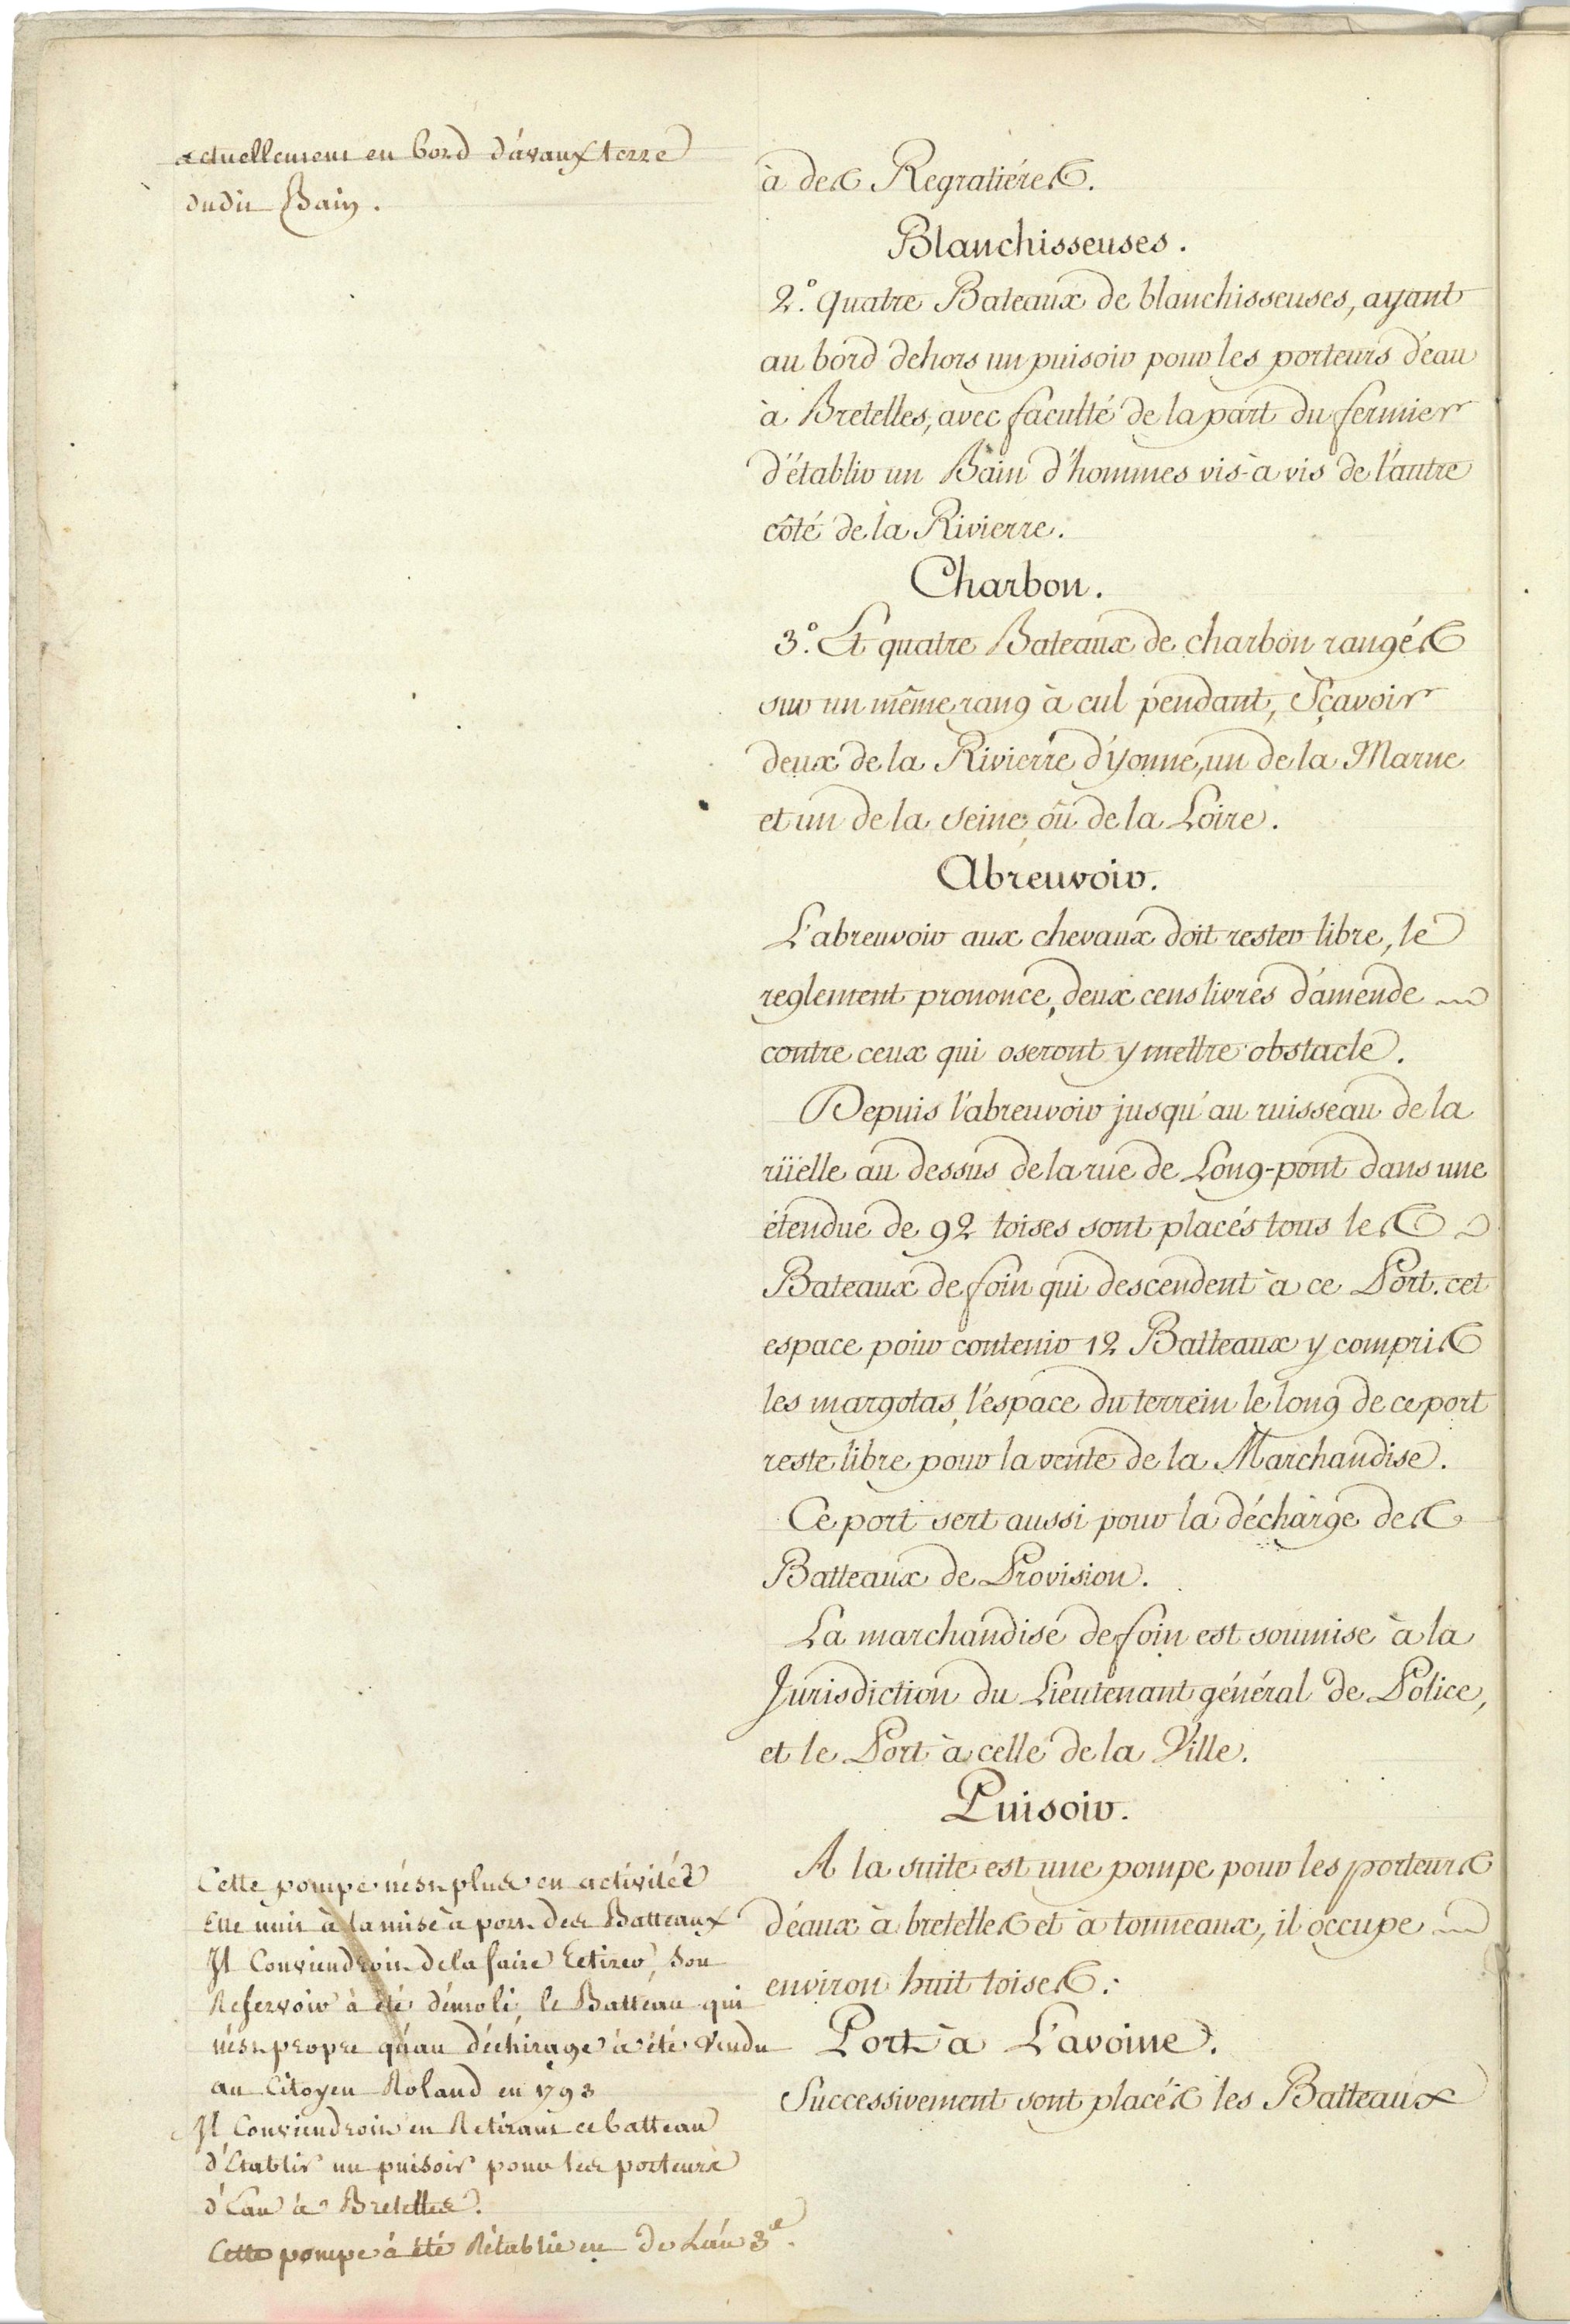 actuellement en bord d'avaux terre
dudit Bain.
à des Regratiéres.
Blanchisseuses.
2.° quatre Bateaux de blanchisseuses, ayant
au bord dehors un puisoir pour les porteurs d'eau
à Bretelles, avec faculté de la part du fermier
d'établir un Bain d'hommes vis-à vis de l'autre
côté de la Rivierre.
Charbon.
3.° Et quatre Bateaux de charbon rangés
sur un même rang à cul pendant, Sçavoir
deux de la Rivierre d'yonne, un de la Marne
et un de la seine où de la Loire.
Abreuvoir.
L'abreuvoir aux chevaux doit rester libre, le
reglement prononce, deux cens livres d'amende
contre ceux qui oseront y mettre obstacle.
Depuis l'abreuvoir jusqu'au ruisseau de la
rüelle au dessus de la rue de Long-pont dans une
étendue de 92 toises sont placés tous les
Bateaux de foin qui descendent à ce Port. cet
espace peut contenir 12 Batteaux y compris
les margotas, l'espace du terrein le long de ce port
reste libre pour la vente de la Marchandise.
Ce port sert aussi pour la décharge des
Batteaux de Provision.
La marchandise de foin est soumise à la
Jurisdiction du Lieutenant général de Police,
et le Port à celle de la Ville.
Puisoir.
A la suite est une pompe pour les porteurs
d'eaux à bretelles et à tonneaux, il occupe
environ huit toises.
Port à L'avoine.
Successivement sont placés les Batteaux
Cette pompe n'est plus en activité
Elle nuit à la mise à port des Batteaux
Il Conviendroit de la faire Retirer, Son
Reservoir à été démoli, le Batteau qui
n'est propre qu'au déchirage à été Vendu
au Citoyen Roland en 1793
Il Conviendroit en Retirant ce batteau
d'Etablir un puisoir pour les porteurs
d'Eau à Bretelles.
Cette pompe à été Rétablie en de L'an 3.e